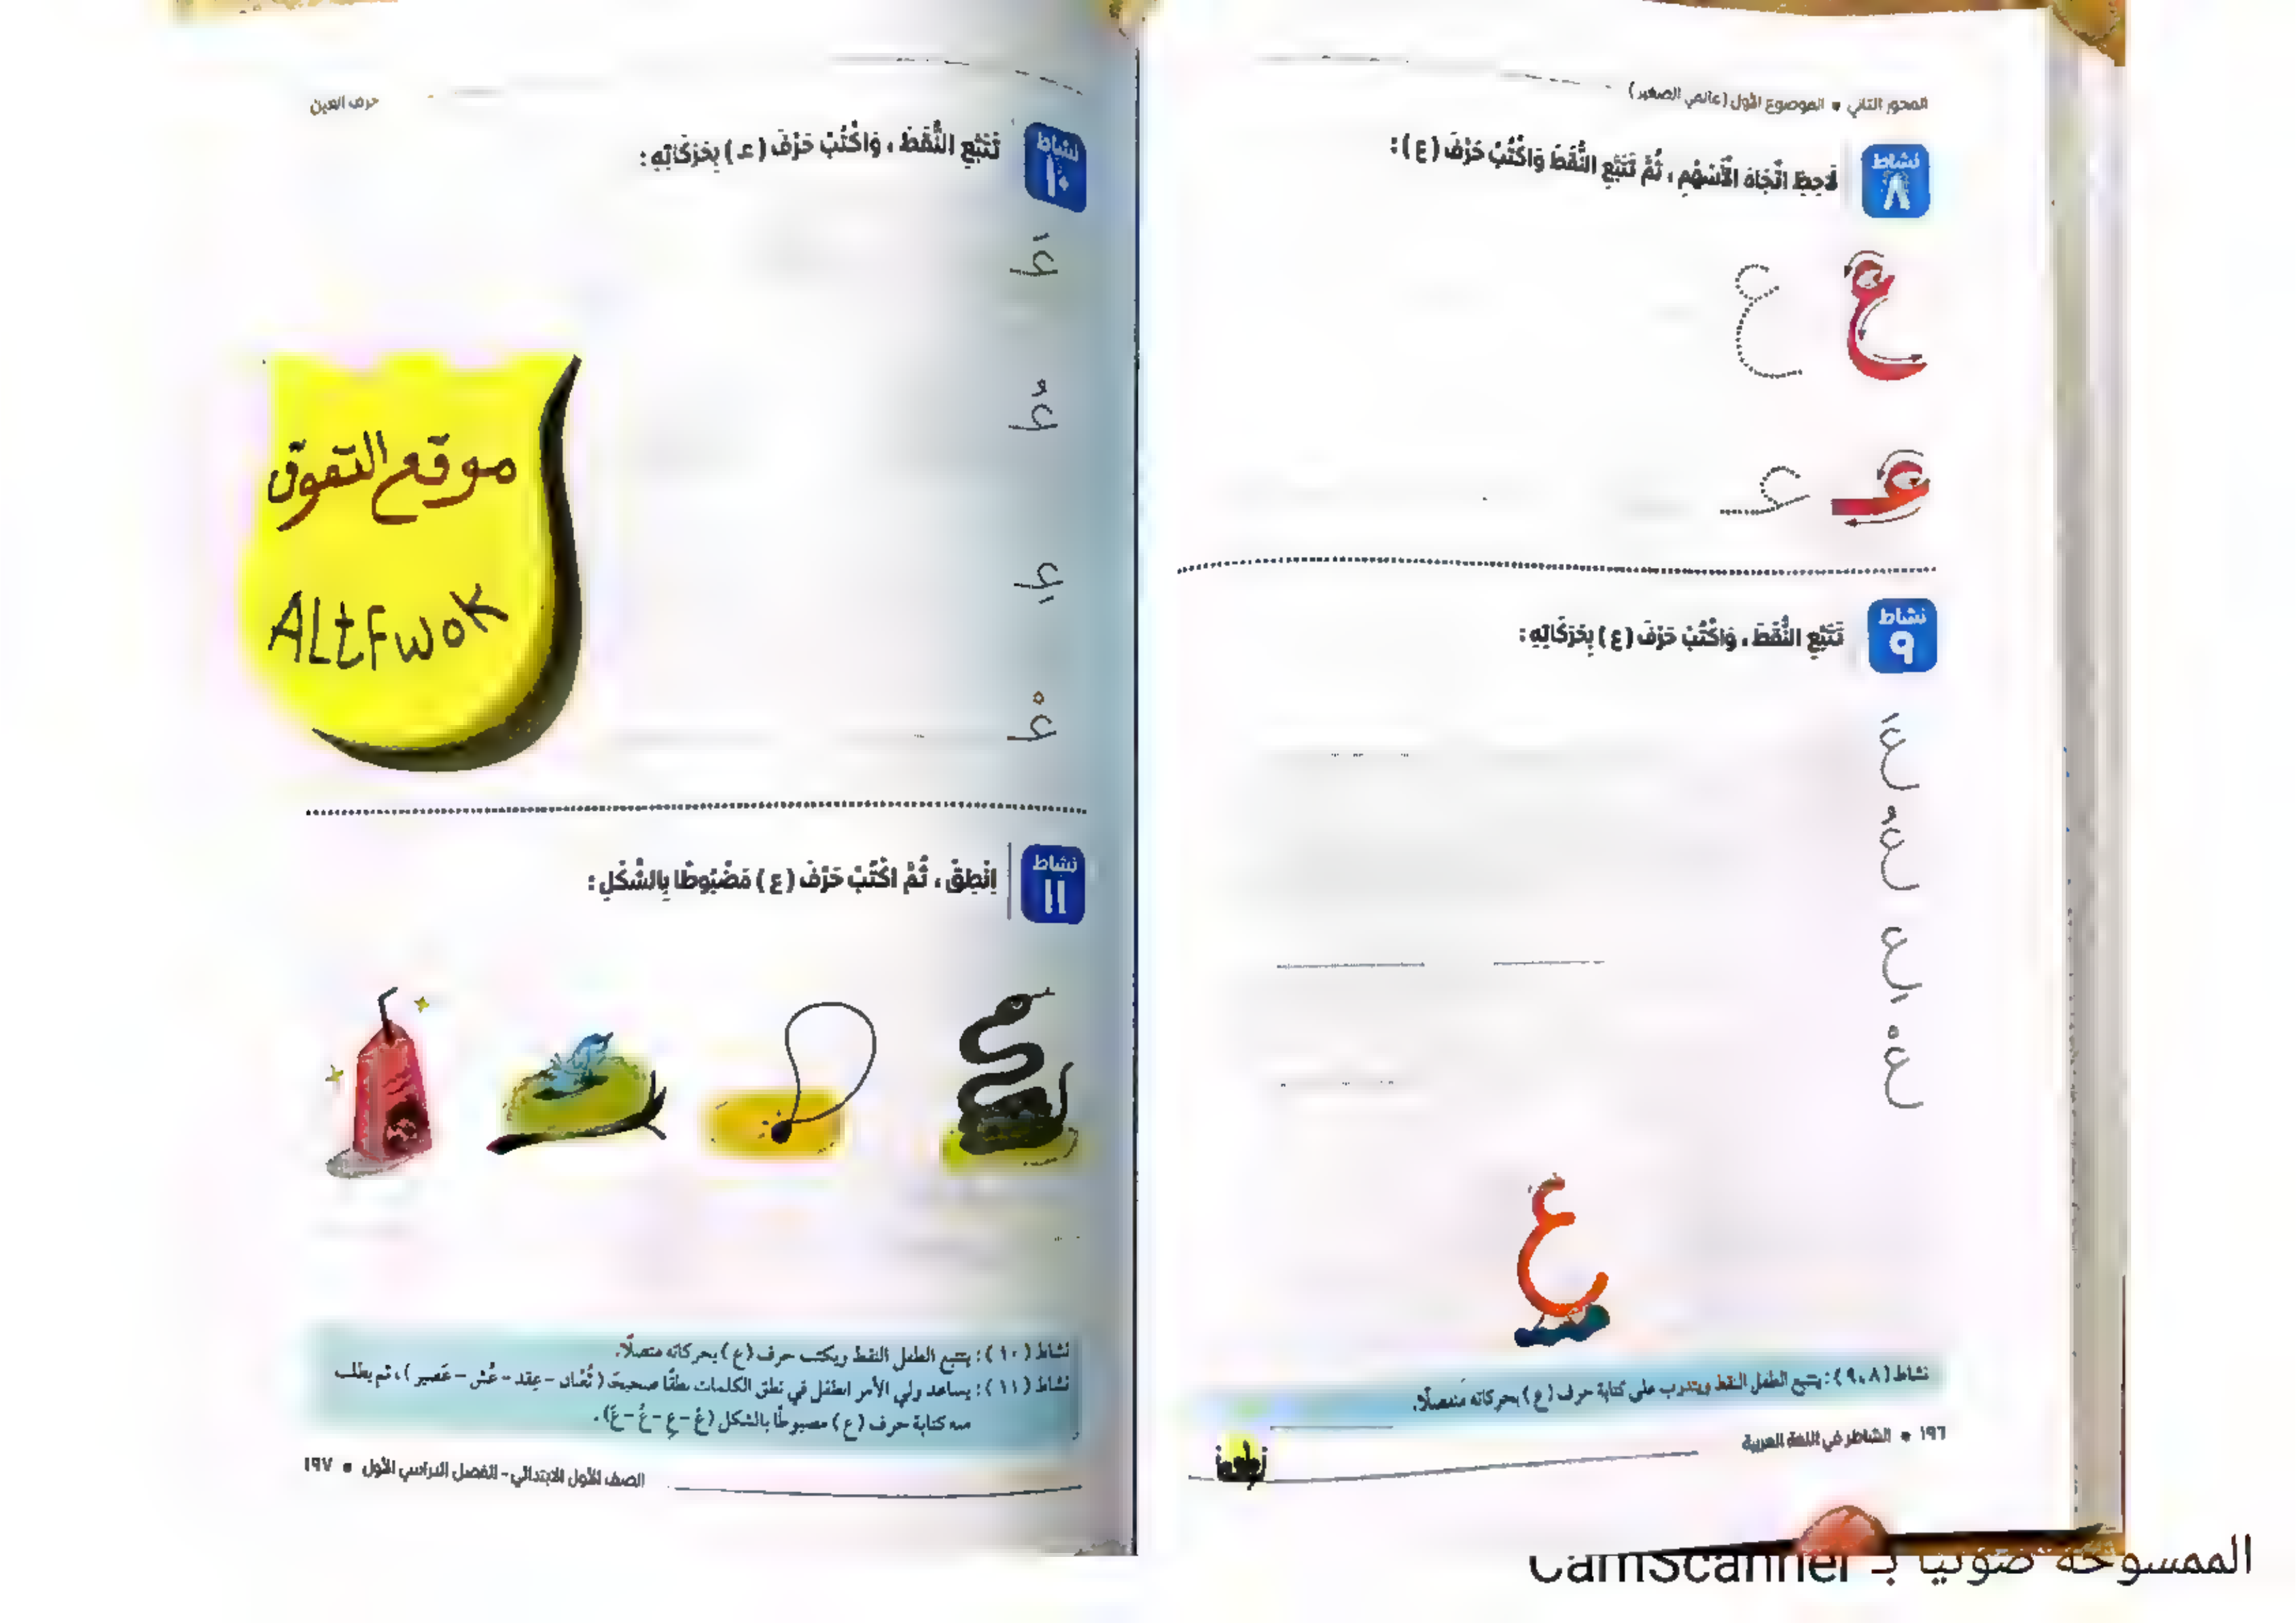 المحور التاني • الموضوع الأول (عالمي الصغير)
نشاط ٨
لَاحِظِ اتِّجَاهَ الْأَسْهُمِ ، ثُمَّ تَتَبَّعِ النُّقَطَ وَاكْتُبْ حَرْفَ (ع) :
ع ع
عـ عـ
نشاط ٩
تَتَبَّعِ النُّقَطَ ، وَاكْتُبْ حَرْفَ (ع) بِحَرَكَاتِهِ :
عَ
عُ
عِ
عْ
ع
نشاط (٨ ، ٩) : يتتبع الطفل النقط ويتدرب على كتابة حرف (ع) بحركاته منفصلًا.
١٩٦ • الشاطر في اللغة العربية
حرف العين
نشاط ١٠
تَتَبَّعِ النُّقَطَ ، وَاكْتُبْ حَرْفَ (عـ) بِحَرَكَاتِهِ :
عَـ
عُـ
عِـ
عْـ
موقع التفوق
ALtFwok
نشاط ١١
اِنْطِقْ ، ثُمَّ اكْتُبْ حَرْفَ (ع) مَضْبُوطًا بِالشَّكْلِ :
نشاط (١٠) : يتتبع الطفل النقط ويكتب حرف (ع) بحركاته متصلًا.
نشاط (١١) : يساعد ولي الأمر الطفل في نطق الكلمات نطقًا صحيحًا (ثُعْبان - عِقد - عُش - عَصير) ، ثم يطلب
منه كتابة حرف (ع) مضبوطًا بالشكل (عْ - عِ - عُ - عَ) .
الصف الأول الابتدائي - الفصل الدراسي الأول • ١٩٧
الممسوحة ضوئيا بـ CamScanner